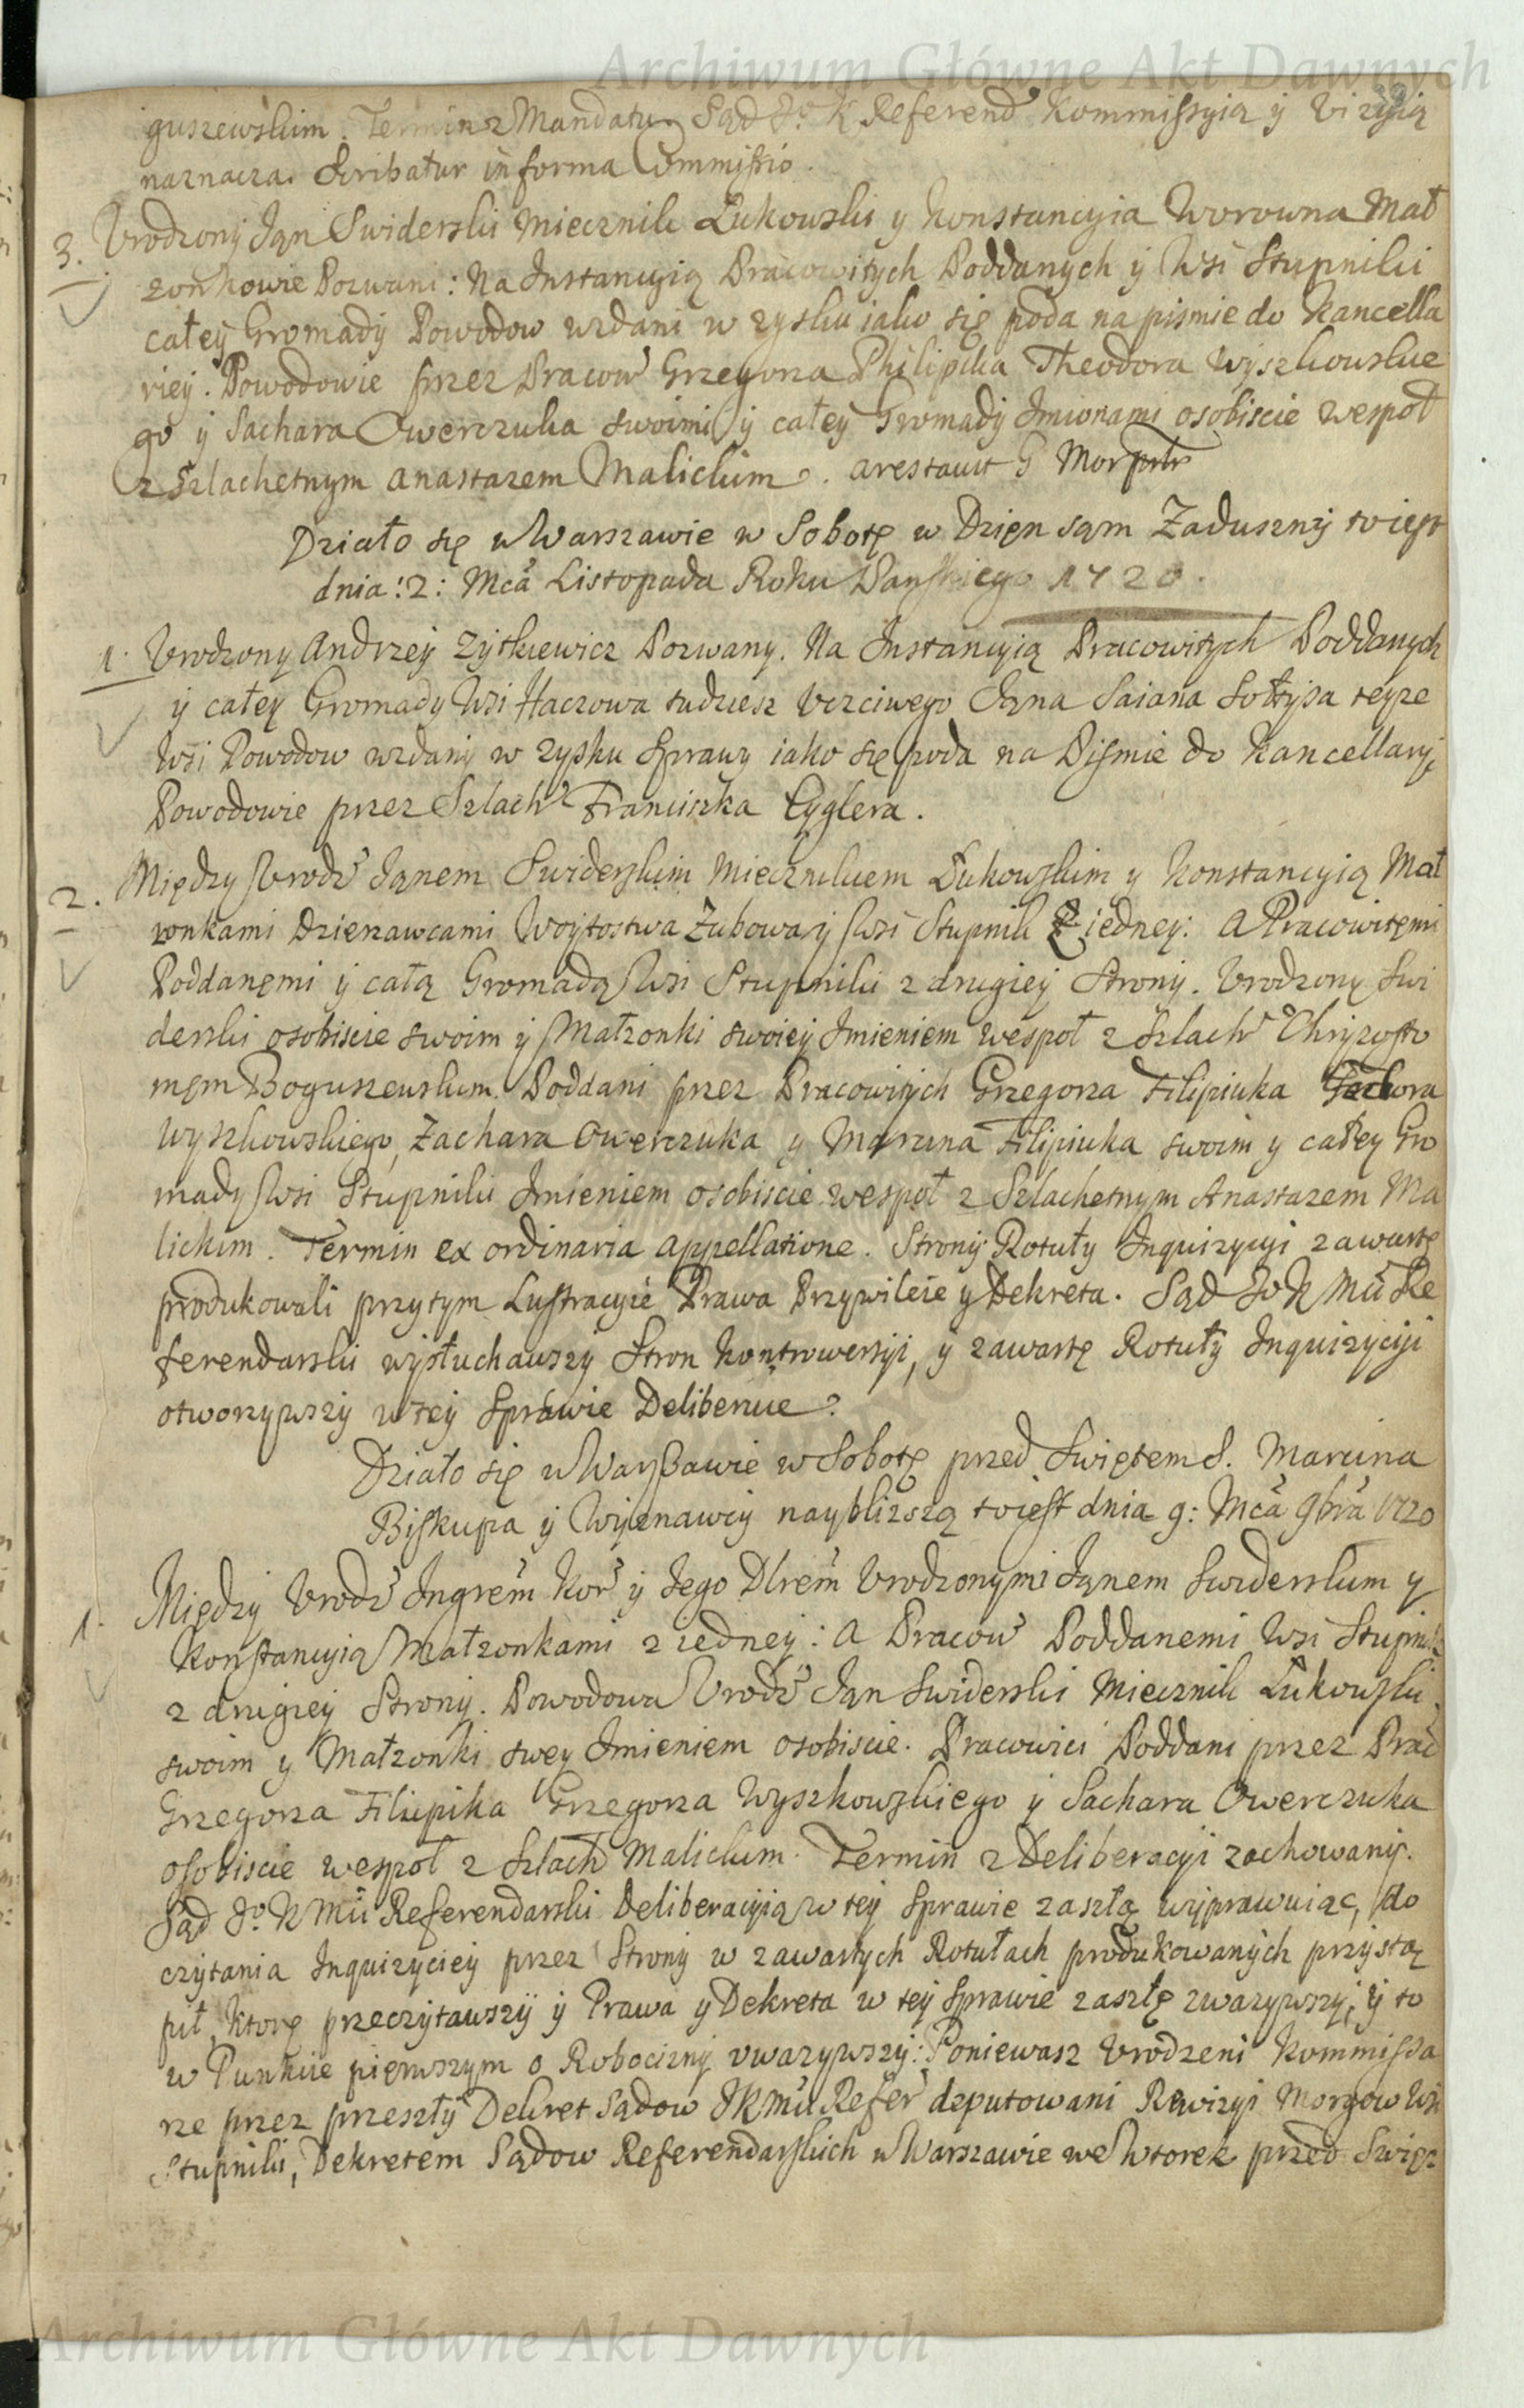 Archiwum Główne Akt Dawnych
guszewskim. Termin z Mandatu. Sąd Jo. K Referend Kommissyią y Wizyią
naznacza. Scribatur in forma Commissio.
3. Urodzony Jąn Swiderski Miecznik Łukowski y Konstancyia Worowna Mał
zonkowie Pozwani: Na Instancyią Pracowitych Poddanych y Wsi Stupniki
całey Gromady Powodow wzdani w zysku iako się poda na pismie do Kancella
riey. Powodowie przez Pracow Grzegorza Philipika Theodora Wyszkowskie
go y Sachara Owerczuka swoimi y całey Gromady Imionami osobiscie wespoł
z Szlachetnym Anastazem Malickim. Arestavit G
Działo się w Warszawie w Sobotę w Dzięn sąm Zaduszny to iest
dnia: 2: Mca Listopada Roku Pańskiego 1720.
1. Urodzony Andrzey Zytkiewicz Pozwany. Na Instancyią Pracowitych Poddanych
y całey Gromady Wsi Haczowa tudziesz Uczciwego Jąna Saiana Sołtysa teyze
Wsi Powodow wzdany w zysku Sprawy iako się poda na Pismie do Kancellaryi,
Powodowie przez Szlach Franciszka Cyglera.
2. Między Urodz Jąnem Swiderskim Miecznikiem Łukowskim y Konstancyią Mał
zonkami Dzierzawcami Woytostwa Zubowa y Wsi Stupnik z iedney: A Pracowitęmi
Poddanęmi y całą Gromadą Wsi Stupniki z drugiey Strony. Urodzony Swi
derski osobiscie swoim y Małzonki swoiey Imieniem wespoł z Szlach Chryzosto
męm Boguszewskim. Poddani przez Pracowitych Grzegorza Filipiuka Fedora
Wyszkowskiego, Zachara Owerczuka y Marcina Filipiuka swoim y całey Gro
mady Wsi Stupniki Imieniem osobiscie wespoł z Szlachetnym Anastazem Ma
lickim. Termin ex ordinaria appellatione. Strony Rotuły Inquizycyi zawartę
produkowali przytym Lustracyie Prawa Przywileie y Dekreta. Sąd Jo K Mci Re
ferendarski wysłuchawszy Stron Kontrowersyi, y zawartę Rotuły Inquizycyi
otworzywszy w tey Sprawie Deliberuie.
Działo się w Warszawie w Sobotę przed Swiętem S. Marcina
Biskupa y Wyznawcy naybliższą to iest dnia 9: Mca 9bra 1720
1. Między Urodz Ingrem Kor y Jego Dlrem Urodzonymi Jąnem Swiderskim y
Konstancyią Małzonkami z iedney: A Pracow Poddanemi Wsi Stupnik
z drugiey Strony. Powodowa Urodz Jąn Swiderski Miecznik Łukowski,
swoim y Małzonki swey Imieniem osobiscie. Pracowici Poddani przez Prac
Grzegorza Filipika Grzegorza Wyszkowskiego y Sachara Owerczuka
osobiscie wespoł z Szlach Malickim. Termin z Deliberacyi zachowany.
Sąd Jo K Mci Referendarski Deliberacyią w tey Sprawie zaszłą wyprawuiąc, do
czytania Inquizyciey przez Strony w zawartych Rotułach produkowanych przystą
pił, Ktorę przeczytawszy y Prawa y Dekreta w tey Sprawie zaszłę zwazywszy, y to
w Punkcie pierwszym o Robocizny uwazywszy: Poniewasz Urodzeni Kommissa
rze przez przeszły Dekret Sądow JKMci Refer deputowani Rewizyi Morgow Wsi
Stupniki, Dekretem Sądow Referendarskich w Warszawie we Wtorek przed Swięt
Archiwum Główne Akt Dawnych